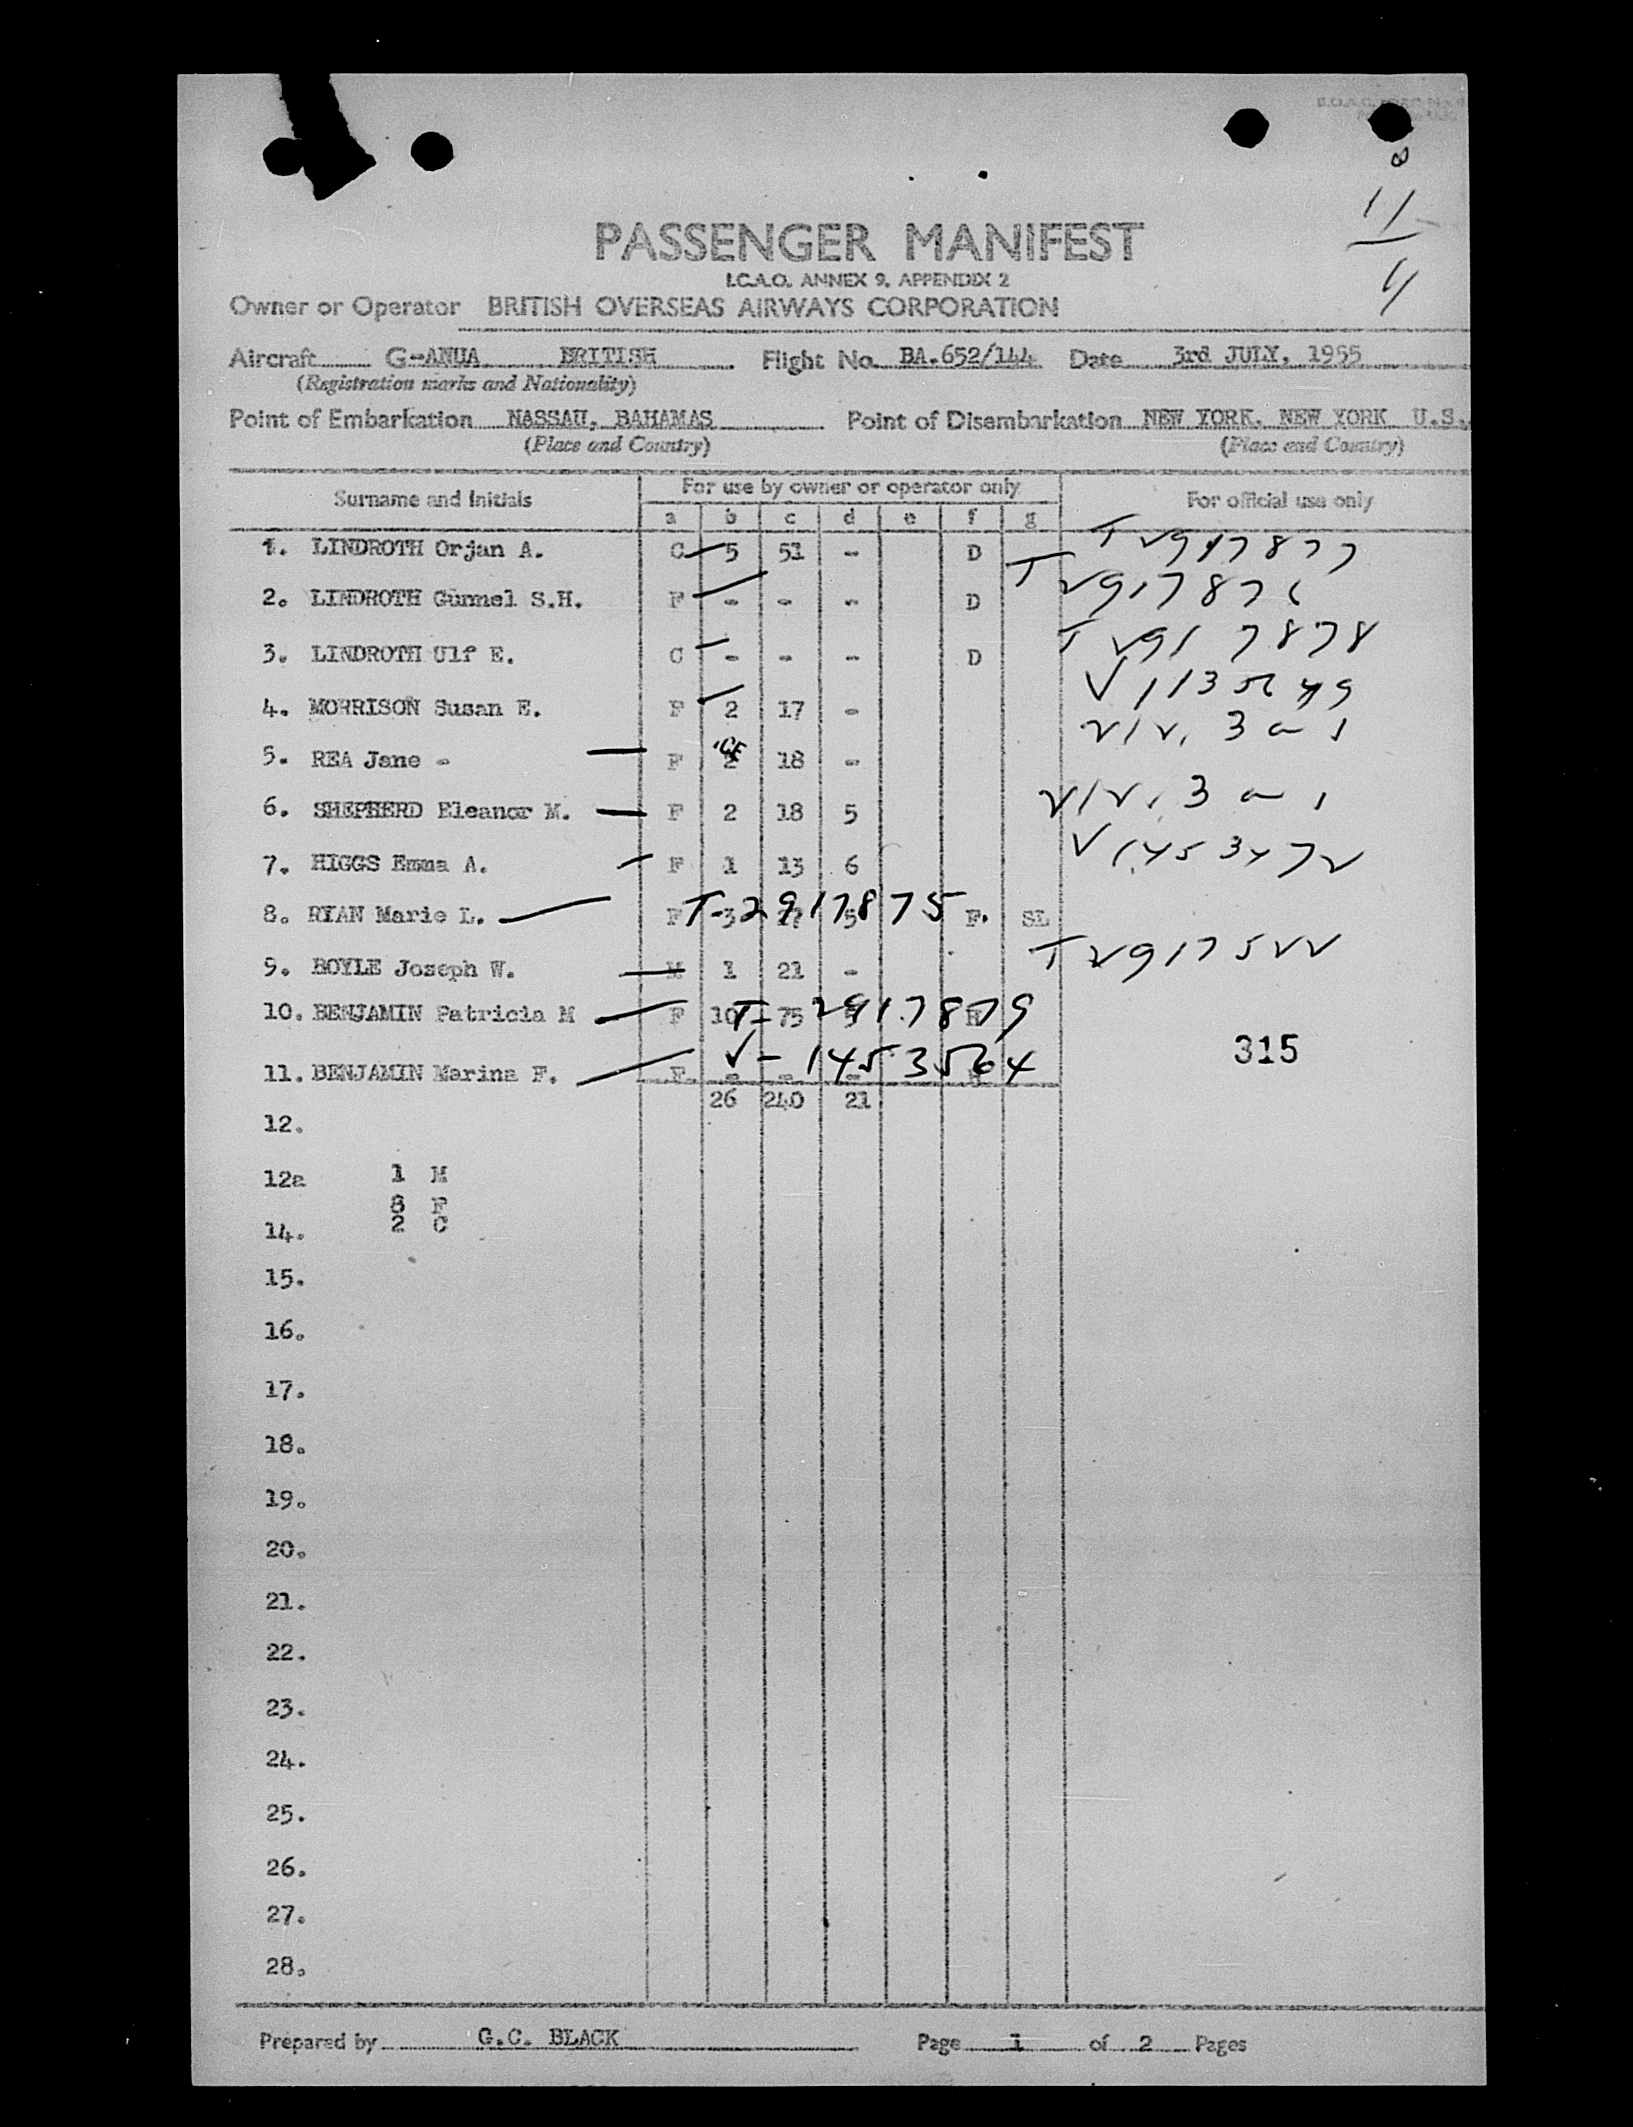 8
11
4
PASSENGER MANIFEST
I.C.A.O. ANNEX 9, APPENDIX 2
Owner or Operator BRITISH OVERSEAS AIRWAYS CORPORATION
Aircraft G-ANUA BRITISH Flight No. BA.652/144 Date 3rd JULY, 1955
(Registration marks and Nationality)
Point of Embarkation NASSAU, BAHAMAS Point of Disembarkation NEW YORK, NEW YORK U.S.
(Place and Country) (Place and Country)
Surname and Initials For use by owner or operator only For official use only
a b c d e f g
1. LINDROTH Orjan A. C 5 51 - D T 2917877
2. LINDROTH Gunnel S.H. F - - - D T 2917876
3. LINDROTH Ulf E. C - - - D T 2917878
4. MORRISON Susan E. F 2 17 -
5. REA Jane - F 2 18 -
6. SHEPHERD Eleanor M. F 2 18 5
7. HIGGS Emma A. F 1 13 6 V 1453472
8. RYAN Marie L. F T-2917875 F. SL
9. BOYLE Joseph W. M 1 21 - T 2917522
10. BENJAMIN Patricia M F 10 75 T-2917879
11. BENJAMIN Marina F. F - - - V-1453564
315
26 240 21
12.
12a 1 M
8 F
14. 2 C
15.
16.
17.
18.
19.
20.
21.
22.
23.
24.
25.
26.
27.
28.
Prepared by G.C. BLACK Page 1 of 2 Pages